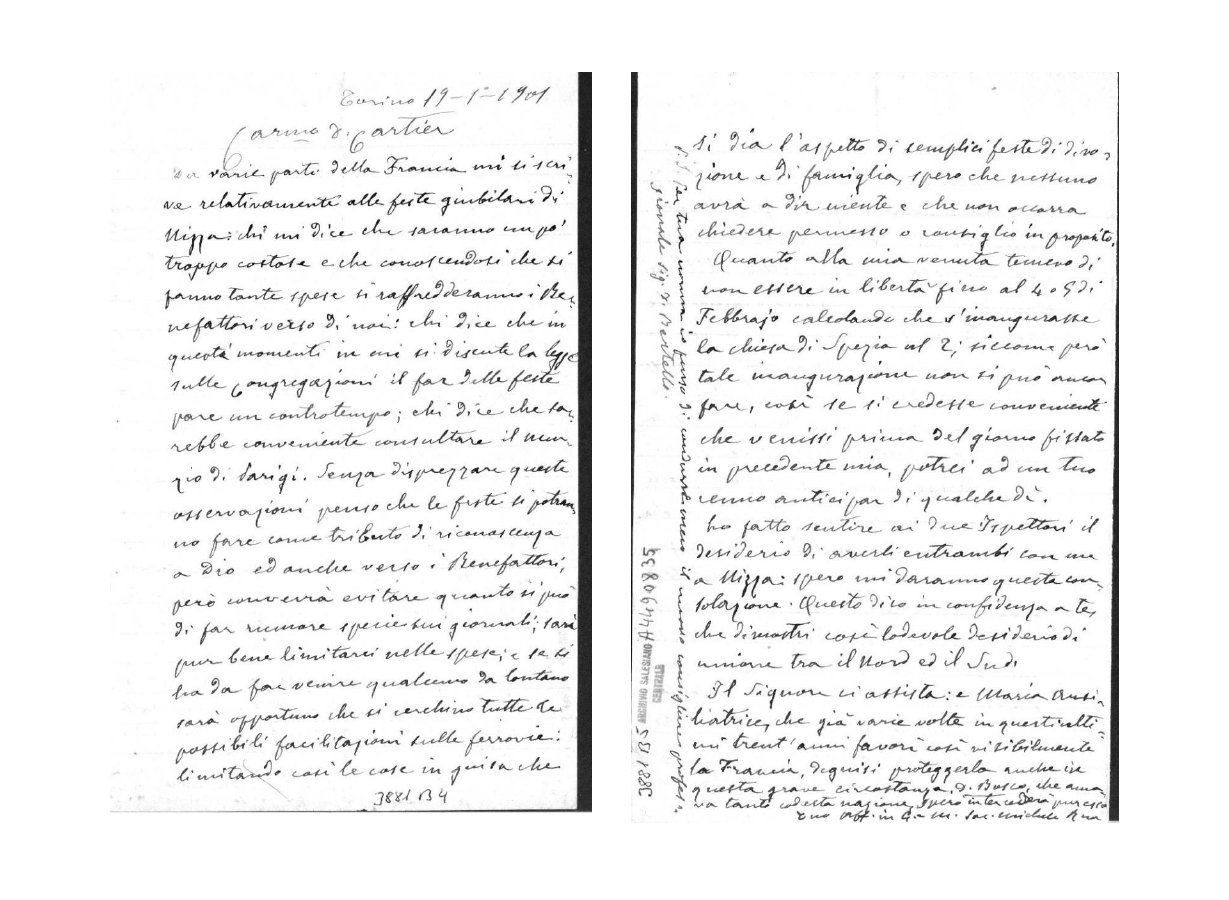 Torino 19-1°-1901
Carmo D. Cartier
Da varie parti della Francia mi si scri-
ve relativamente alle feste giubilari di
Nizza: chi mi dice che saranno un po'
troppo costose e che conoscendosi che si
fanno tante spese si raffredderanno i Be-
nefattori verso di noi: chi dice che in
questi momenti in cui si discute la legge
sulle Congregazioni il far delle feste
pare un controtempo; chi dice che sa-
rebbe conveniente consultare il nun-
zio di Parigi. Senza disprezzare queste
osservazioni penso che le feste si potran-
no fare come tributo di riconoscenza
a Dio ed anche verso i Benefattori,
però converrà evitare quanto si può
di far rumore specie sui giornali; sarà
pur bene limitarci nelle spese; e se si
ha da far venire qualcuno da lontano
sarà opportuno che si cerchino tutte le
possibili facilitazioni sulle ferrovie:
limitando così le cose in guisa che
3881 B4
si dia l'aspetto di semplici feste di divo-
zione e di famiglia, spero che nessuno
avrà a dir niente e che non occorra
chiedere permesso o consiglio in proposito.
Quanto alla mia venuta temevo di
non essere in libertà fino al 4 o 5 di
Febbrajo calcolando che s'inaugurasse
la chiesa di Spezia al 2; siccome però
tale inaugurazione non si può ancor
fare, così se si credesse conveniente
che venissi prima del giorno fissato
in precedente mia, potrei ad un tuo
cenno anticipar di qualche dì.
Ho fatto sentire ai due Ispettori il
desiderio di averli entrambi con me
a Nizza: spero mi daranno questa con-
solazione. Questo dico in confidenza a te,
che dimostri così lodevole desiderio di
unione tra il Nord ed il Sud.
Il Signore ci assista: e Maria Ausi-
liatrice, che già varie volte in questi ulti-
mi trent'anni favorì così visibilmente
la Francia, degnisi proteggerla anche in
questa grave circostanza. D. Bosco, che ama-
va tanto codesta nazione, spero intercederà pur esso
Tuo aff. in G. e M. Sac. Michele Rua
P.S. Per tua norma io penso di condurre meco il nuovo consigliere profes-
sionale sig. D. Bertello.
3881 B5
ARCHIVIO SALESIANO
CENTRALE
H4490835